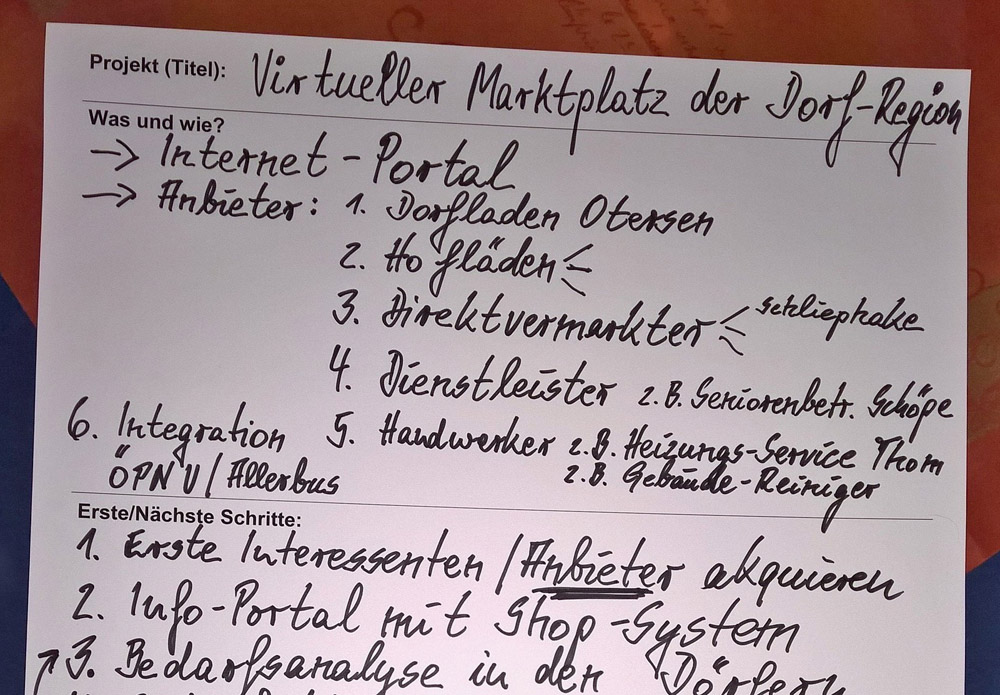 Projekt (Titel): Virtueller Marktplatz der Dorf-Region
Was und wie?
→ Internet-Portal
→ Anbieter: 1. Dorfladen Otersen
2. Hofläden
3. Direktvermarkter Schliephake
4. Dienstleister z.B. Seniorenbetr. Schöpe
5. Handwerker z.B. Heizungs-Service Thom
z.B. Gebäude-Reiniger
6. Integration
ÖPNV/Allerbus
Erste/Nächste Schritte:
1. Erste Interessenten/Anbieter akquieren
2. Info-Portal mit Shop-System
3. Bedarfsanalyse in den Dörfern